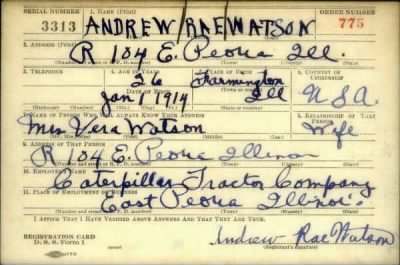 SERIAL NUMBER 1. NAME (Print) ORDER NUMBER
3313 ANDREW RAE WATSON 775
2. ADDRESS (Print)
R 104 E. Peoria Ill.
3. TELEPHONE 4. AGE IN YEARS 5. PLACE OF BIRTH 6. COUNTRY OF CITIZENSHIP
26 Farmington
Jan 1 1914 Ill U.S.A.
7. NAME OF PERSON WHO WILL ALWAYS KNOW YOUR ADDRESS 8. RELATIONSHIP OF THAT PERSON
Mrs. Vera Watson Wife
9. ADDRESS OF THAT PERSON
R 104 E. Peoria Illinois
10. EMPLOYER'S NAME
Caterpillar Tractor Company
11. PLACE OF EMPLOYMENT OR BUSINESS
East Peoria Illinois
I AFFIRM THAT I HAVE VERIFIED ABOVE ANSWERS AND THAT THEY ARE TRUE.
REGISTRATION CARD
D. S. S. Form 1 Andrew Rae Watson
(Registrant's signature)